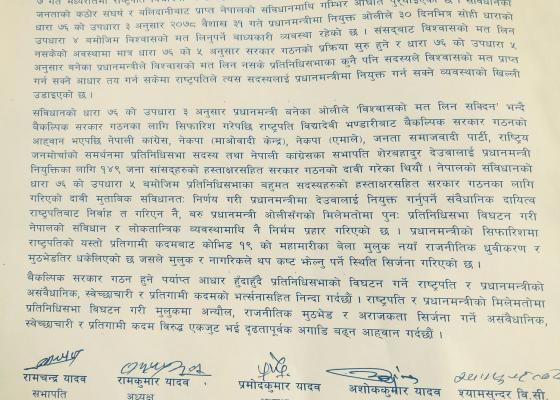 जनताको कठोर संघर्ष र बलिदानीबाट प्राप्त नेपालको संविधानमाथि गम्भिर आघात पुर्‍याइएको छ । संविधानको
धारा ७६ को उपधारा ३ अनुसार २०७८ वैशाख ३१ गते प्रधानमन्त्रीमा नियुक्त ओलीले ३० दिनभित्र सोही धाराको
उपधारा ४ बमोजिम विश्वासको मत लिनुपर्ने बाध्यकारी व्यवस्था रहेको छ । संसदबाट विश्वासको मत लिन
नसकेको अवस्थामा मात्र धारा ७६ को ५ अनुसार सरकार गठनको प्रकिया सुरु हुने र धारा ७६ को उपधारा ५
अनुसार बनेका प्रधानमन्त्रीले विश्वासको मत लिन नसके प्रतिनिधिसभाका कुनै पनि सदस्यले विश्वासको मत प्राप्त
गर्न सक्ने आधार तय गर्न सकेमा राष्ट्रपतिले त्यस सदस्यलाई प्रधानमन्त्रीमा नियुक्त गर्न सक्ने व्यवस्थाको खिल्ली
उडाइएको छ ।
संविधानको धारा ७६ को उपधारा ३ अनुसार प्रधानमन्त्री बनेका ओलीले 'विश्वासको मत लिन सक्दिन' भन्दै
वैकल्पिक सरकार गठनका लागि सिफारिश गरेपछि राष्ट्रपति विद्यादेवी भण्डारीबाट वैकल्पिक सरकार गठनको
आह्वान भएपछि नेपाली कांग्रेस, नेकपा (माओवादी केन्द्र), नेकपा (एमाले), जनता समाजवादी पार्टी, राष्ट्रिय
जनमोर्चाको समर्थनमा प्रतिनिधिसभा सदस्य तथा नेपाली कांग्रेसका सभापति शेरबहादुर देउवालाई प्रधानमन्त्री
नियुक्तिका लागि १४९ जना सांसदहरुको हस्ताक्षरसहित सरकार गठनको दावी गरेका थियौं । नेपालको संविधानको
धारा ७६ को उपधारा ५ बमोजिम प्रतिनिधिसभाका बहुमत सदस्यहरुको हस्ताक्षरसहित सरकार गठनका लागि
गरिएको दावी मुताविक संविधानतः निर्णय गरी प्रधानमन्त्रीमा देउवालाई नियुक्त गर्नुपर्ने संवैधानिक दायित्व
राष्ट्रपतिबाट निर्वाह त गरिएन नै, बरु प्रधानमन्त्री ओलीसँगको मिलेमतोमा पुनः प्रतिनिधिसभा विघटन गरी
नेपालको संविधान र लोकतान्त्रिक व्यवस्थामाथि नै निर्मम प्रहार गरिएको छ । प्रधानमन्त्रीको सिफारिसमा
राष्ट्रपतिको यस्तो प्रतिगामी कदमबाट कोभिड १९ को महामारीका बेला मुलुक नयाँ राजनीतिक ध्रुवीकरण र
मुठभेडतिर धकेलिएको छ जसले मुलुक र नागरिकले थप कष्ट झेल्नु पर्ने स्थिति सिर्जना गरिएको छ ।
वैकल्पिक सरकार गठन हुने पर्याप्त आधार हुँदाहुँदै प्रतिनिधिसभाको विघटन गर्ने राष्ट्रपति र प्रधानमन्त्रीको
असंवैधानिक, स्वेच्छाचारी र प्रतिगामी कदमको भर्त्सनासहित निन्दा गर्दछौं । राष्ट्रपति र प्रधानमन्त्रीको मिलेमतोमा
प्रतिनिधिसभा विघटन गरी मुलुकमा अन्यौल, राजनीतिक मुठभेड र अराजकता सिर्जना गर्ने असंवैधानिक,
स्वेच्छाचारी र प्रतिगामी कदम विरुद्ध एकजुट भई दृढतापूर्वक अगाडि बढ्न आह्वान गर्दछौं ।
रामचन्द्र यादव रामकुमार यादव प्रमोदकुमार यादव अशोककुमार यादव श्यामसुन्दर वि.सी.
सभापति अध्यक्ष